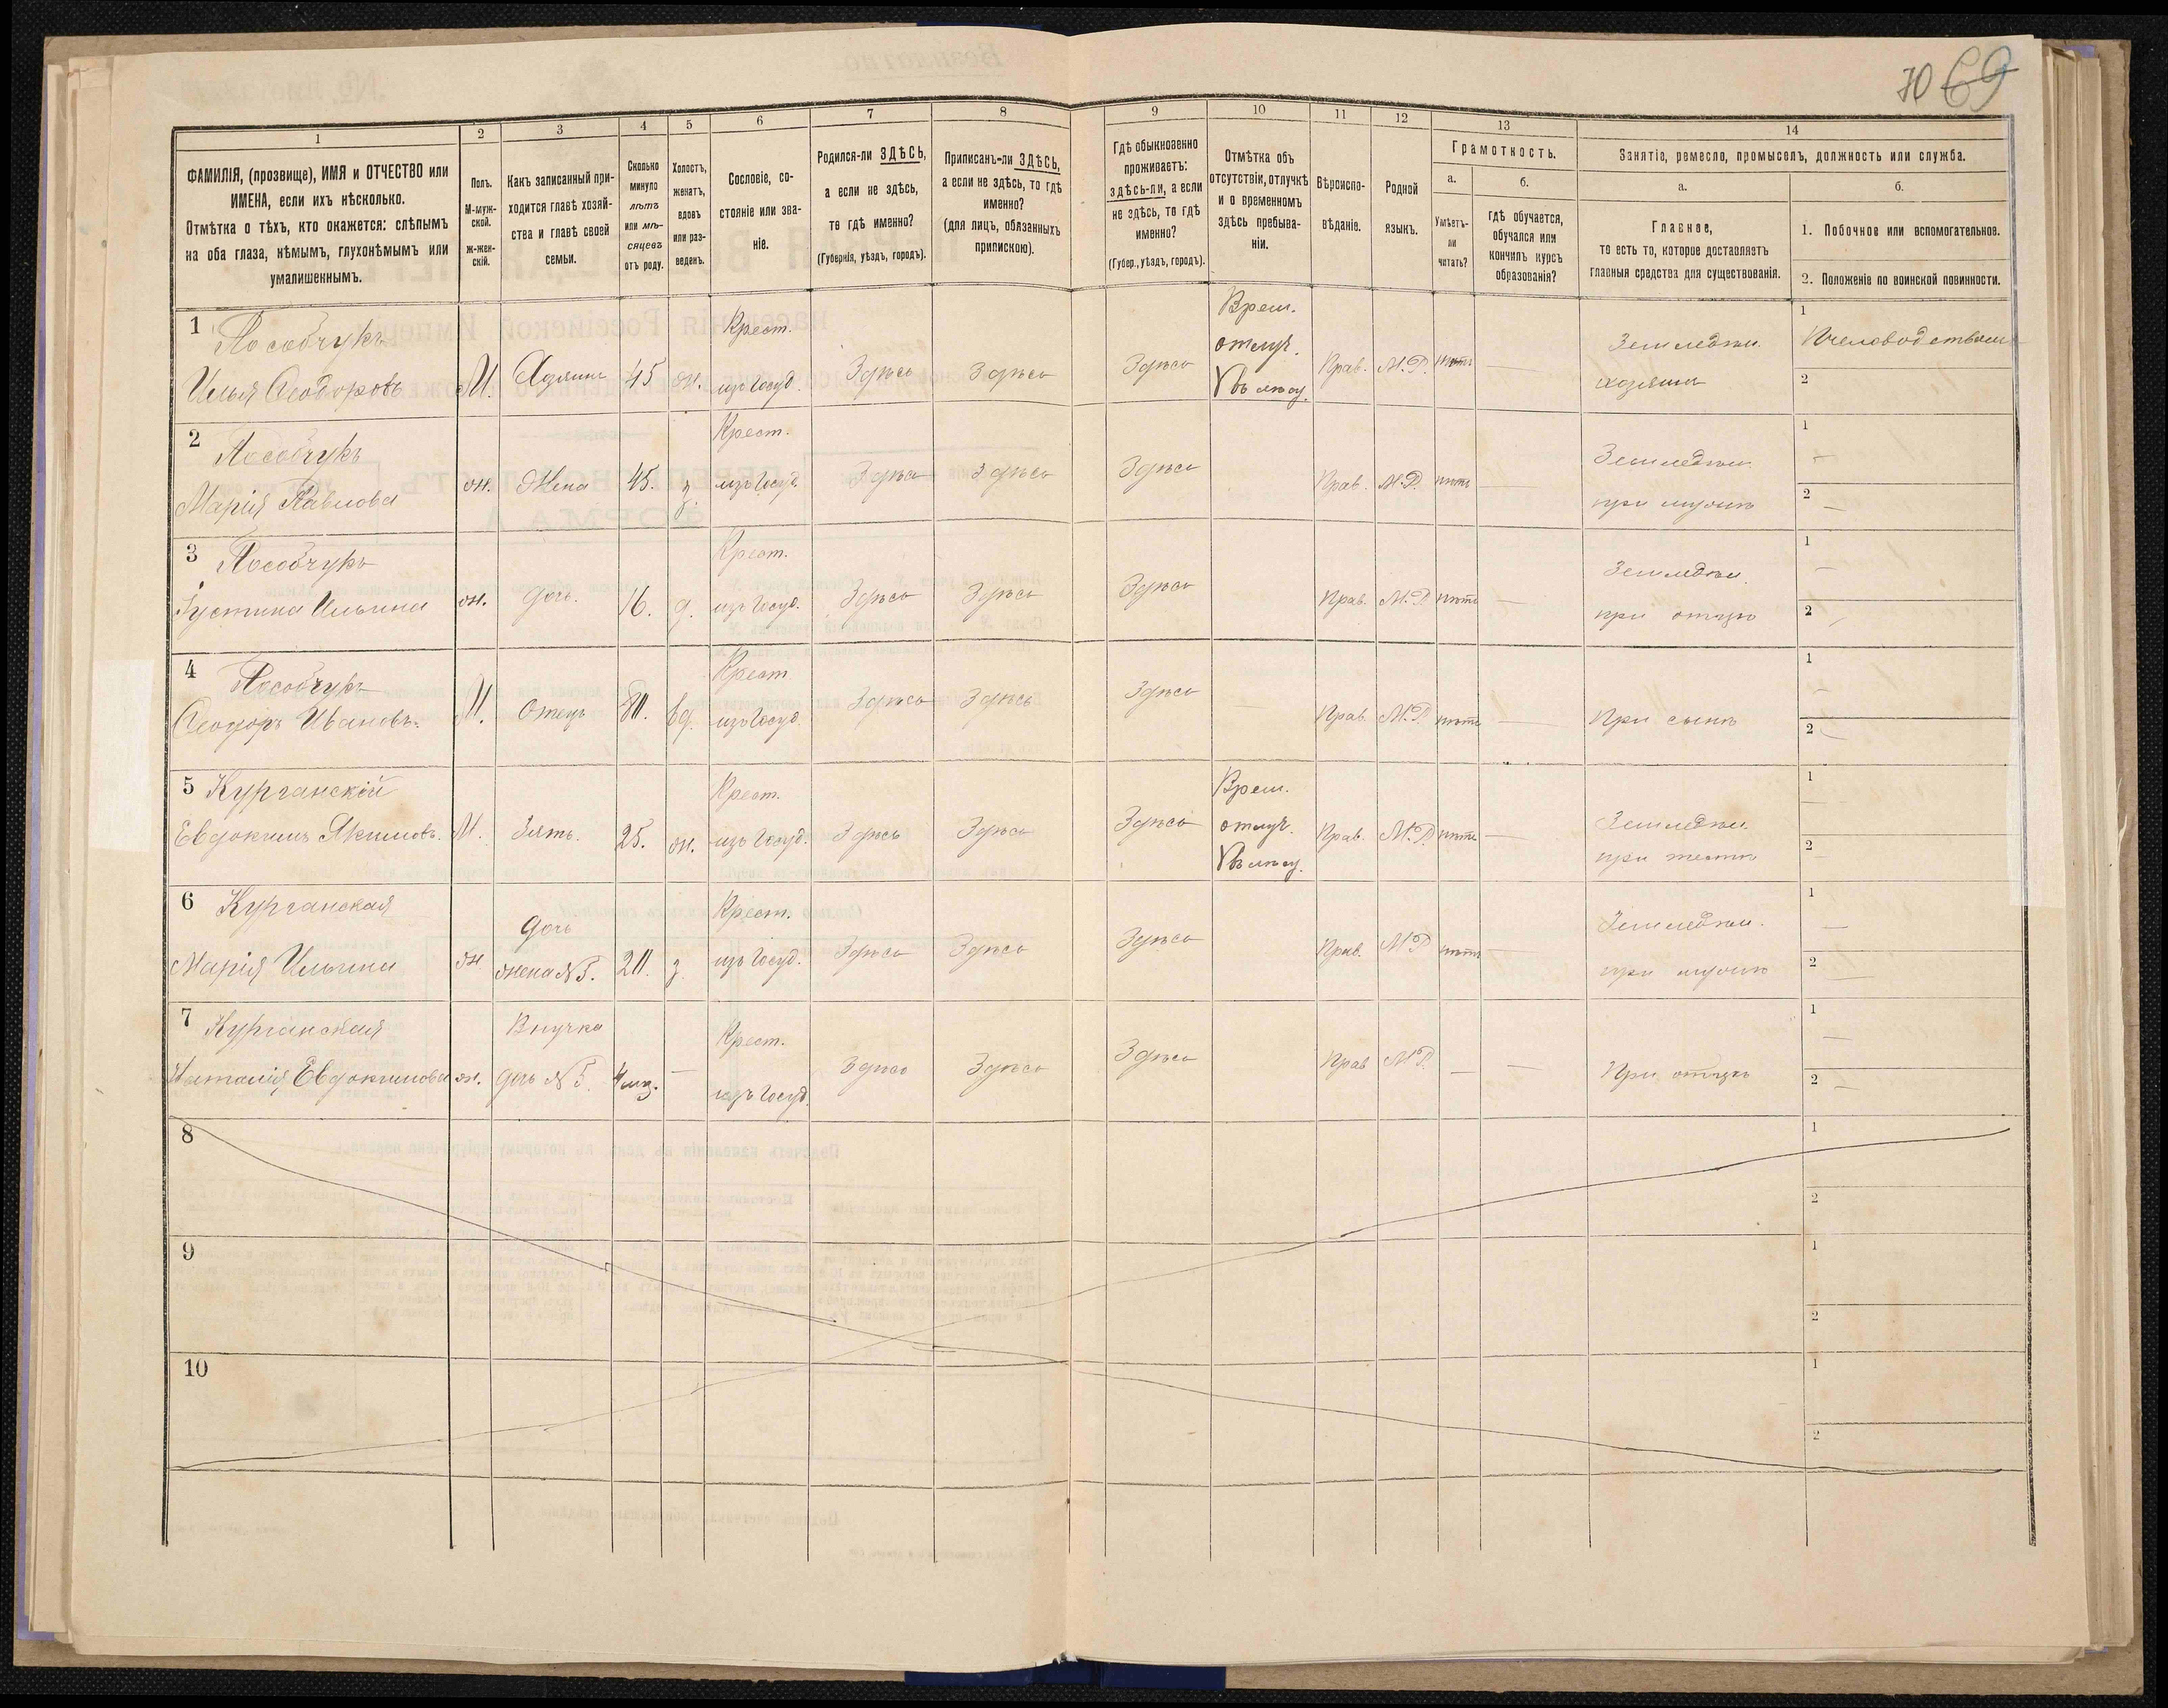 70 69
1 2 3 4 5 6 7 8 9 10 11 12 13 14
ФАМИЛІЯ, (прозвище), ИМЯ и ОТЧЕСТВО или
ИМЕНА, если ихъ нѣсколько.
Отмѣтка о тѣхъ, кто окажется: слѣпымъ
на оба глаза, нѣмымъ, глухонѣмымъ или
умалишеннымъ.
Полъ.
М-муж-
ской.
ж-жен-
скій.
Какъ записанный при-
ходится главѣ хозяй-
ства и главѣ своей
семьи.
Сколько
минуло
лѣтъ
или мѣ-
сяцевъ
отъ роду.
Холостъ,
женатъ,
вдовъ
или раз-
веденъ.
Сословіе, со-
стояніе или зва-
ніе.
Родился-ли ЗДѢСЬ,
а если не здѣсь,
то гдѣ именно?
(Губернія, уѣздъ, городъ).
Приписанъ-ли ЗДѢСЬ,
а если не здѣсь, то гдѣ
именно?
(для лицъ, обязанныхъ
припискою).
Гдѣ обыкновенно
проживаетъ:
здѣсь-ли, а если
не здѣсь, то гдѣ
именно?
(Губер., уѣздъ, городъ).
Отмѣтка объ
отсутствіи, отлучкѣ
и о временномъ
здѣсь пребыва-
ніи.
Вѣроиспо-
вѣданіе.
Родной
языкъ.
Грамотность.
а.
Умѣетъ-
ли
читать?
б.
гдѣ обучается,
обучался или
кончилъ курсъ
образованія?
Занятіе, ремесло, промыселъ, должность или служба.
а.
Главное,
то есть то, которое доставляетъ
главныя средства для существованія.
б.
1. Побочное или вспомогательное.
2. Положеніе по воинской повинности.
1 Пособчукъ Крест. Врем. Земледѣл. 1 Пчеловодствомъ
Илья Ѳеодоровъ М. Хозяинъ 45 ж. изъ Госуд. Здѣсь Здѣсь Здѣсь отлуч. Прав. М.Р. нѣтъ — хозяинъ 2
Въ лѣсу.
2 Пособчукъ Крест. Земледѣл. 1 —
Марія Павлова ж. Жена 45. з. изъ Госуд. Здѣсь Здѣсь Здѣсь Прав. М.Р. нѣтъ — при мужѣ 2 —
3 Пособчукъ Крест. Земледѣл. 1 —
Іустина Ильина ж. Дочь. 16. д. изъ Госуд. Здѣсь Здѣсь Здѣсь Прав. М.Р. нѣтъ — при отцѣ 2
4 Пособчукъ Крест 1 —
Ѳеодоръ Ивановъ. М. Отецъ 80. вд. изъ Госуд. Здѣсь Здѣсь Здѣсь Прав. М.Р. нѣтъ — При сынѣ 2
5 Курганскій Крест. Врем. Земледѣл. 1
Евдокимъ Якимовъ. М. Зять. 25. ж. изъ Госуд. Здѣсь Здѣсь Здѣсь отлуч. Прав. М.Р. нѣтъ — при тестѣ 2 —
Въ лѣсу.
6 Курганская Дочь Крест. Земледѣл. 1 —
Марія Ильина ж жена №5. 20. з. изъ Госуд. Здѣсь Здѣсь Здѣсь Прав. М.Р. нѣтъ — при мужѣ 2 —
7 Курганская Внучка Крест. 1 —
Наталія Евдокимова ж. дочь №5. 4 мц. — изъ Госуд. Здѣсь Здѣсь Здѣсь Прав М.Р. — — При отцѣ 2 —
8 1
2
9 1
2
10 1
2